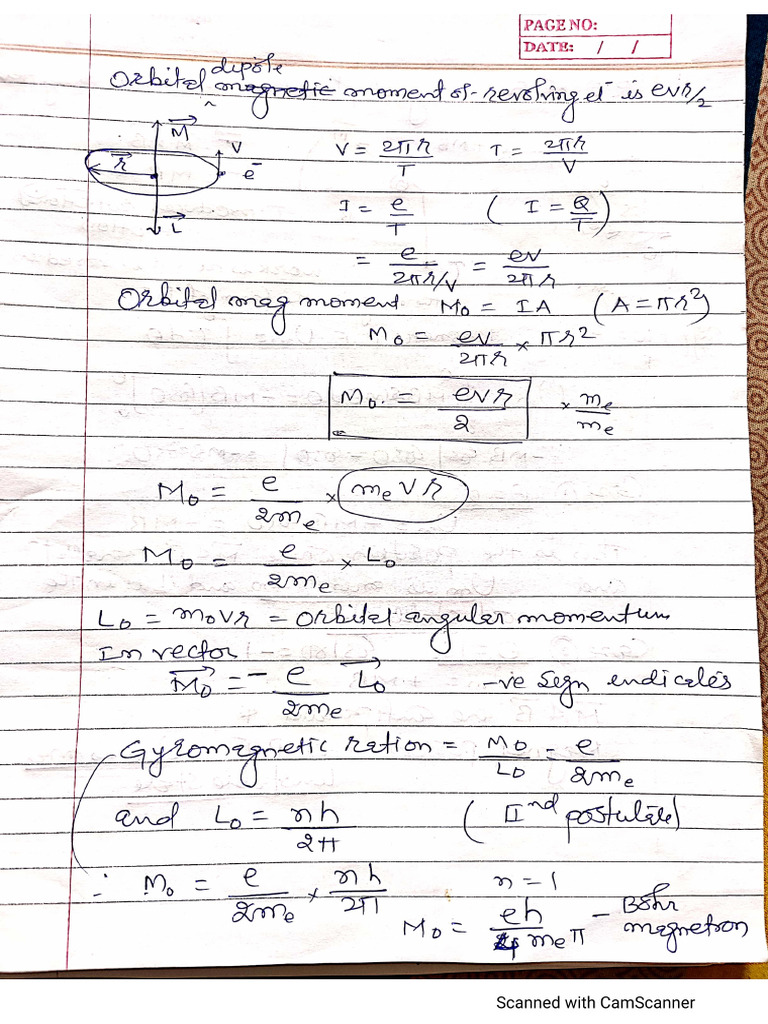 PAGE NO:
DATE: / /
dipole
Orbital magnetic moment of revolving e⁻ is evr/2
M
r
V
e⁻
L
V = 2πr/T T = 2πr/V
I = e/T ( I = Q/T )
= e/2πr/V = ev/2πr
Orbital mag moment M₀ = IA (A = πr²)
M₀ = ev/2πr × πr²
M₀ = evr/2 × mₑ/mₑ
M₀ = e/2mₑ × mₑVr
M₀ = e/2mₑ × L₀
L₀ = m₀vr = Orbital angular momentum
In vector
M₀ = - e/2mₑ L₀ -ve Sign endicates
Gyromagnetic ration = M₀/L₀ = e/2mₑ
and L₀ = nh/2π ( IInd postulate)
∴ M₀ = e/2mₑ × nh/2π n = 1
M₀ = eh/4mₑπ - Bohr
magnetron
Scanned with CamScanner